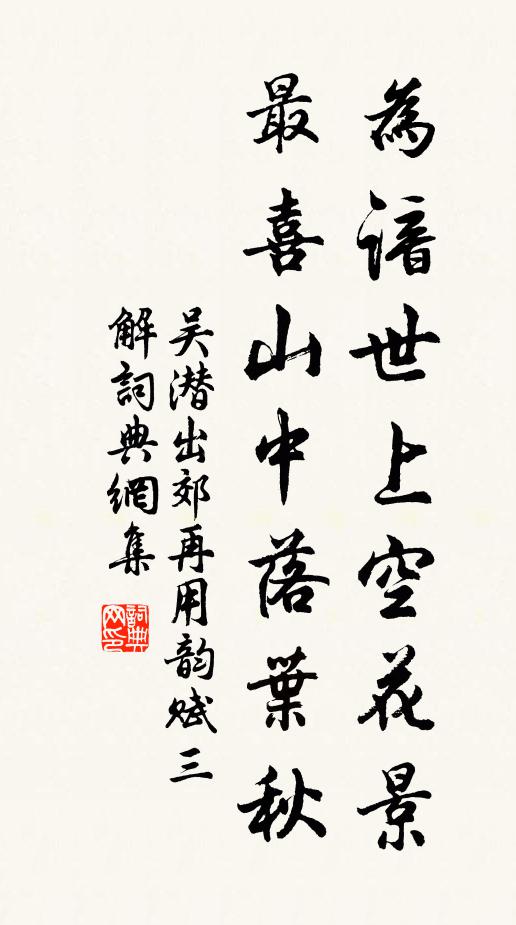 為諳世上空花景
最喜山中落葉秋
吴潜出郊再用韵赋三
解詞典網集
詞典网印